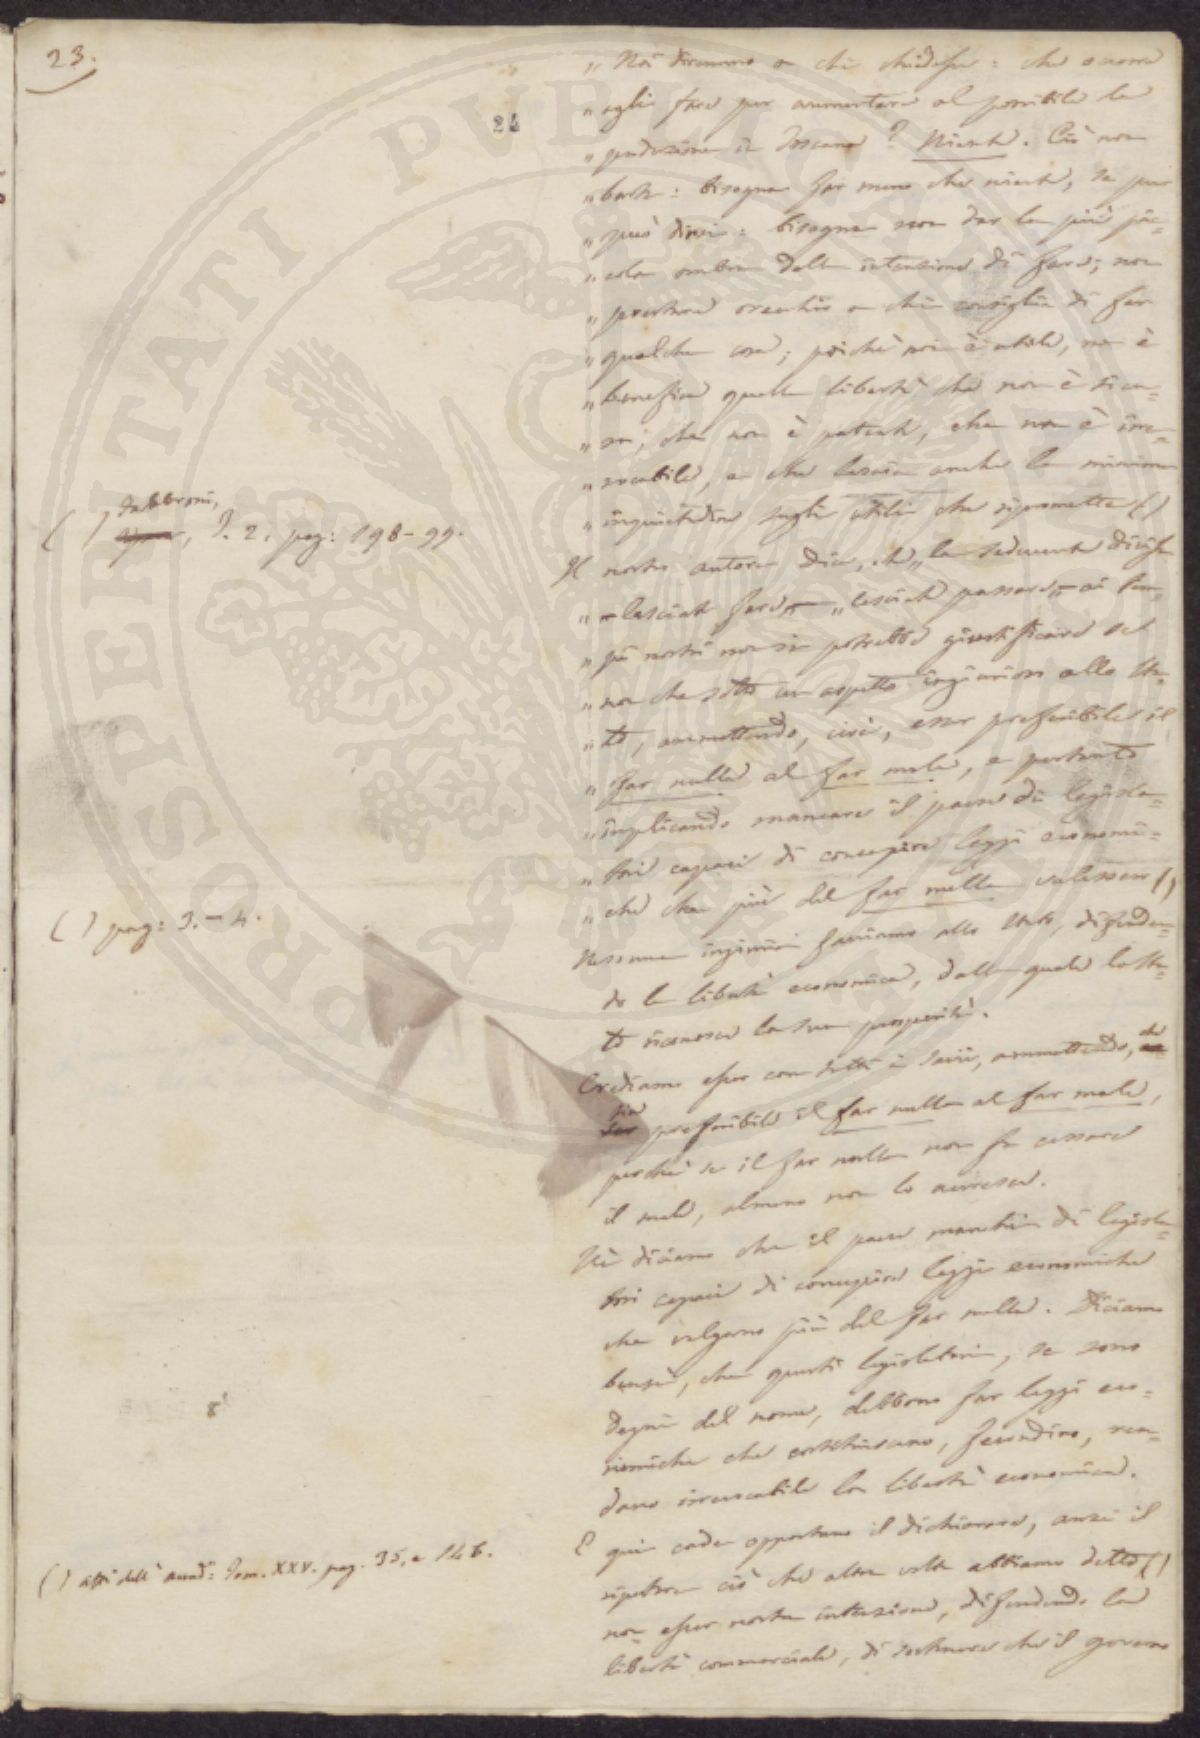 23.
24
„ Noi diremmo a chi chiedesse: che occorre
„ egli fare per aumentare al possibile la
„ produzione in Toscana? Niente. Ciò non
„ basta: bisogna far meno che niente, se pur
„ può dirsi: bisogna non dar la più pic=
„ cola ombra della intenzione di fare; non
„ prestare orecchio a chi consiglia di far
„ qualche cosa; poichè non è utile, non è
„ benefica quella libertà che non è sicu=
„ ra, che non è patente, che non è irre=
„ vocabile, e che lascia anche la minima
„ inquietudine sugli utili che ripromette ()
() Fabbroni,
T. 2. pag: 198-99.
Il nostro autore dice, che „ la seducente divisa
„ lasciate fare, „ lasciate passare, ai tem=
„ pi nostri non si potrebbe giustificare se
„ non che sotto un aspetto ingiurioso allo Sta=
„ to, ammettendo, cioè, esser preferibile il
„ far nulla al far male, e pertanto
„ implicando mancare il paese di legisla=
„ tori capaci di concepire leggi economi=
„ che che più del far nulla valessero ()
() pag: 3.-4.
Nessuna ingiuria facciamo allo Stato, difenden=
do la libertà economica, dalla quale lo Sta=
to riconosce la sua prosperità.
Crediamo esser con tutti i savii, ammettendo, che
sia preferibile il far nulla al far male,
perchè se il far nulla non fa cessare
il male, almeno non lo accresce.
Nè diciamo che il paese manchi di legisla=
tori capaci di concepire leggi economiche
che valgano più del far nulla. Diciamo
bensì, che questi legislatori, se sono
degni del nome, debbono far leggi eco=
nomiche che costituiscano, fecondino, ren=
dano irrevocabile la libertà economica.
E qui cade opportuno il dichiarare, anzi il
ripetere ciò che altre volte abbiamo detto ()
non esser nostra intenzione, difendendo la
libertà commerciale, di sostenere che il governo
() Atti dell' Accad: Tom. XXV. pag. 35, e 146.